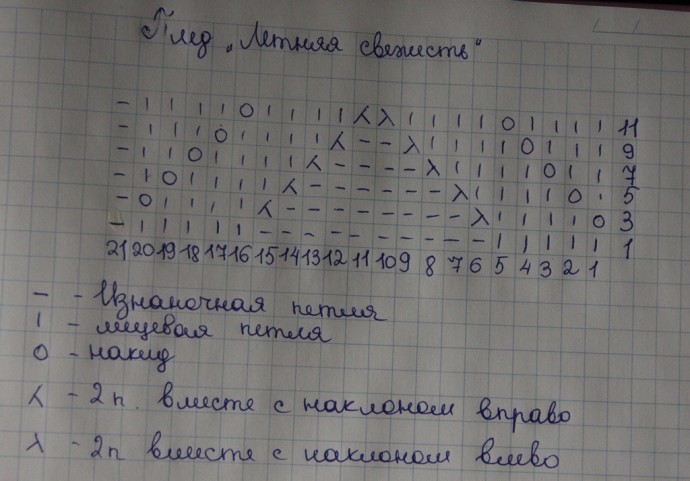 Плед „Летняя свежесть"
- | | | | O | | | | ⋌ λ | | | | O | | | | 11
- | | | O | | | | ⋌ - - λ | | | | O | | | 9
- | | O | | | | ⋌ - - - - λ | | | | O | | 7
- | O | | | | ⋌ - - - - - - λ | | | | O | 5
- O | | | | ⋌ - - - - - - - - λ | | | | O 3
- | | | | | - - - - - - - - - - | | | | | 1
21 20 19 18 17 16 15 14 13 12 11 10 9 8 7 6 5 4 3 2 1
- - Изнаночная петля
| - лицевая петля
O - накид
⋌ - 2п. вместе с наклоном вправо
λ - 2п вместе с наклоном влево